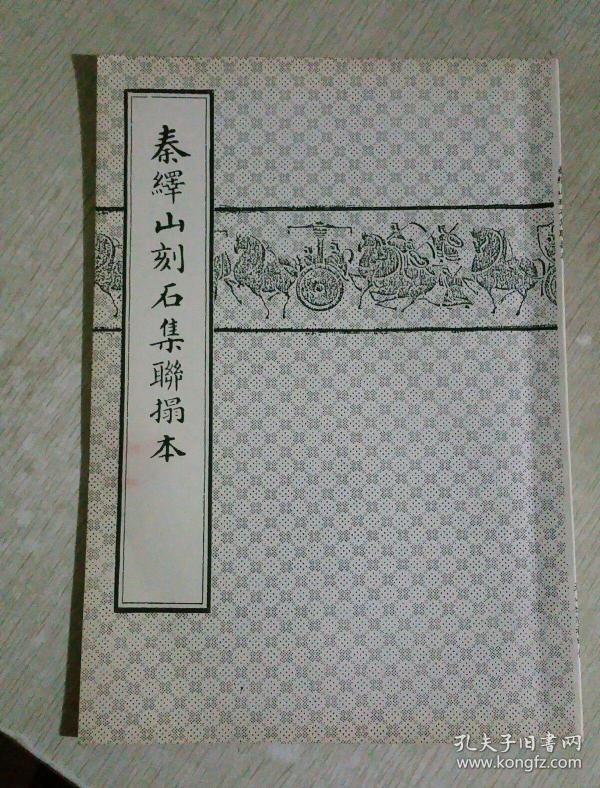 秦繹山刻石集聯搨本
孔夫子旧書网
www.kongfz.com